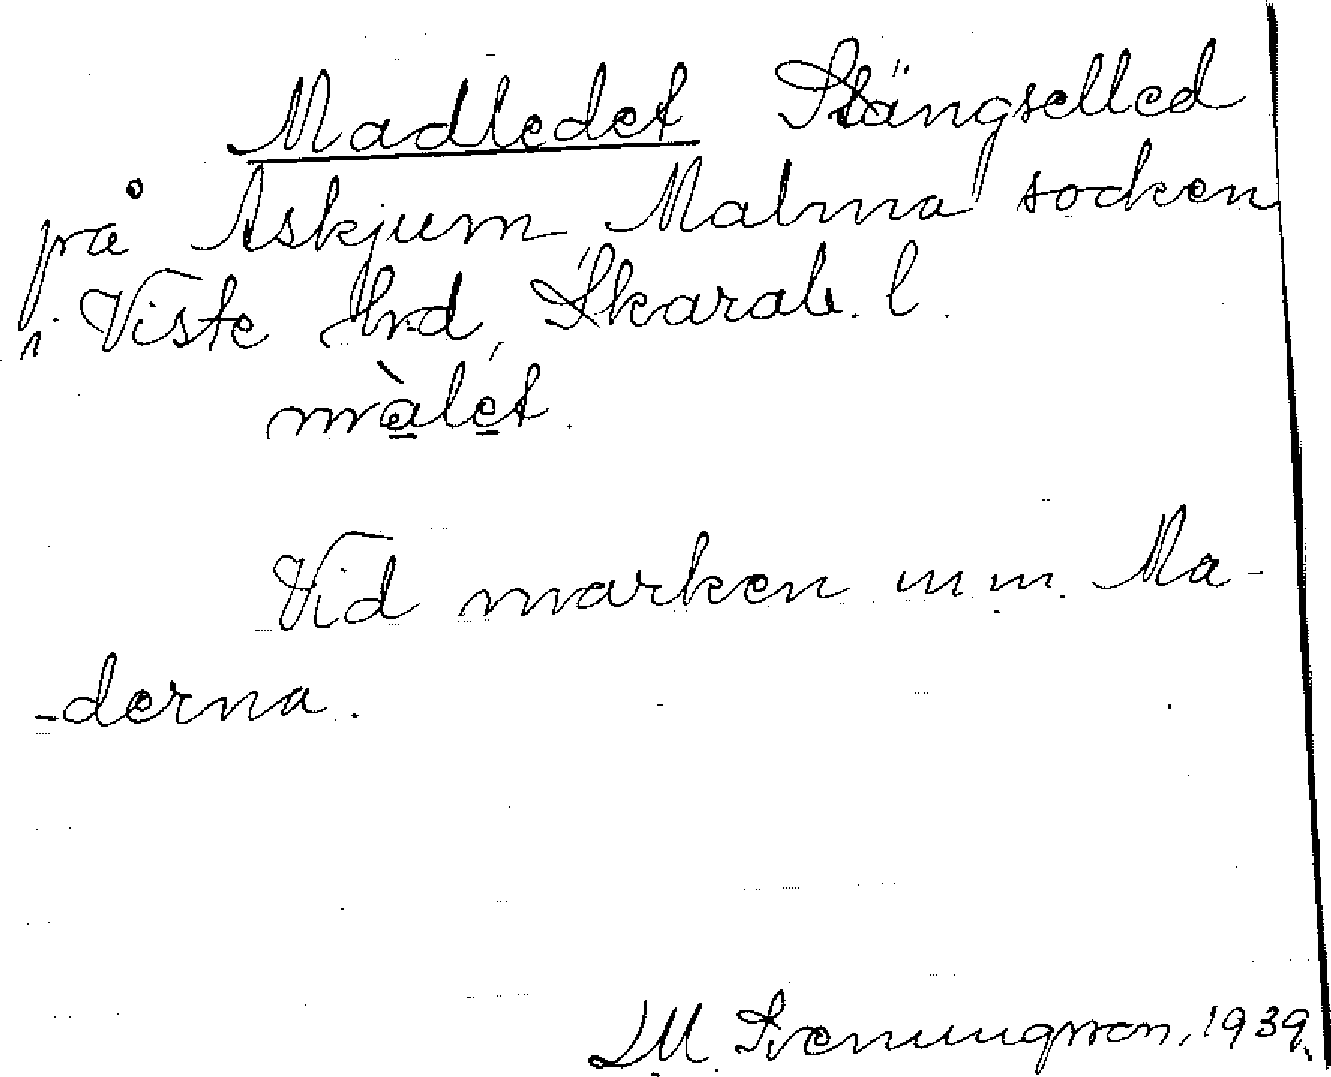 Madledet Stängselled
på Askjum Malma socken
i Viste hrd, Skarab. l.
màlet.
Vid marken m m. Ma-
-derna.
LM. Svenungsson, 1939.